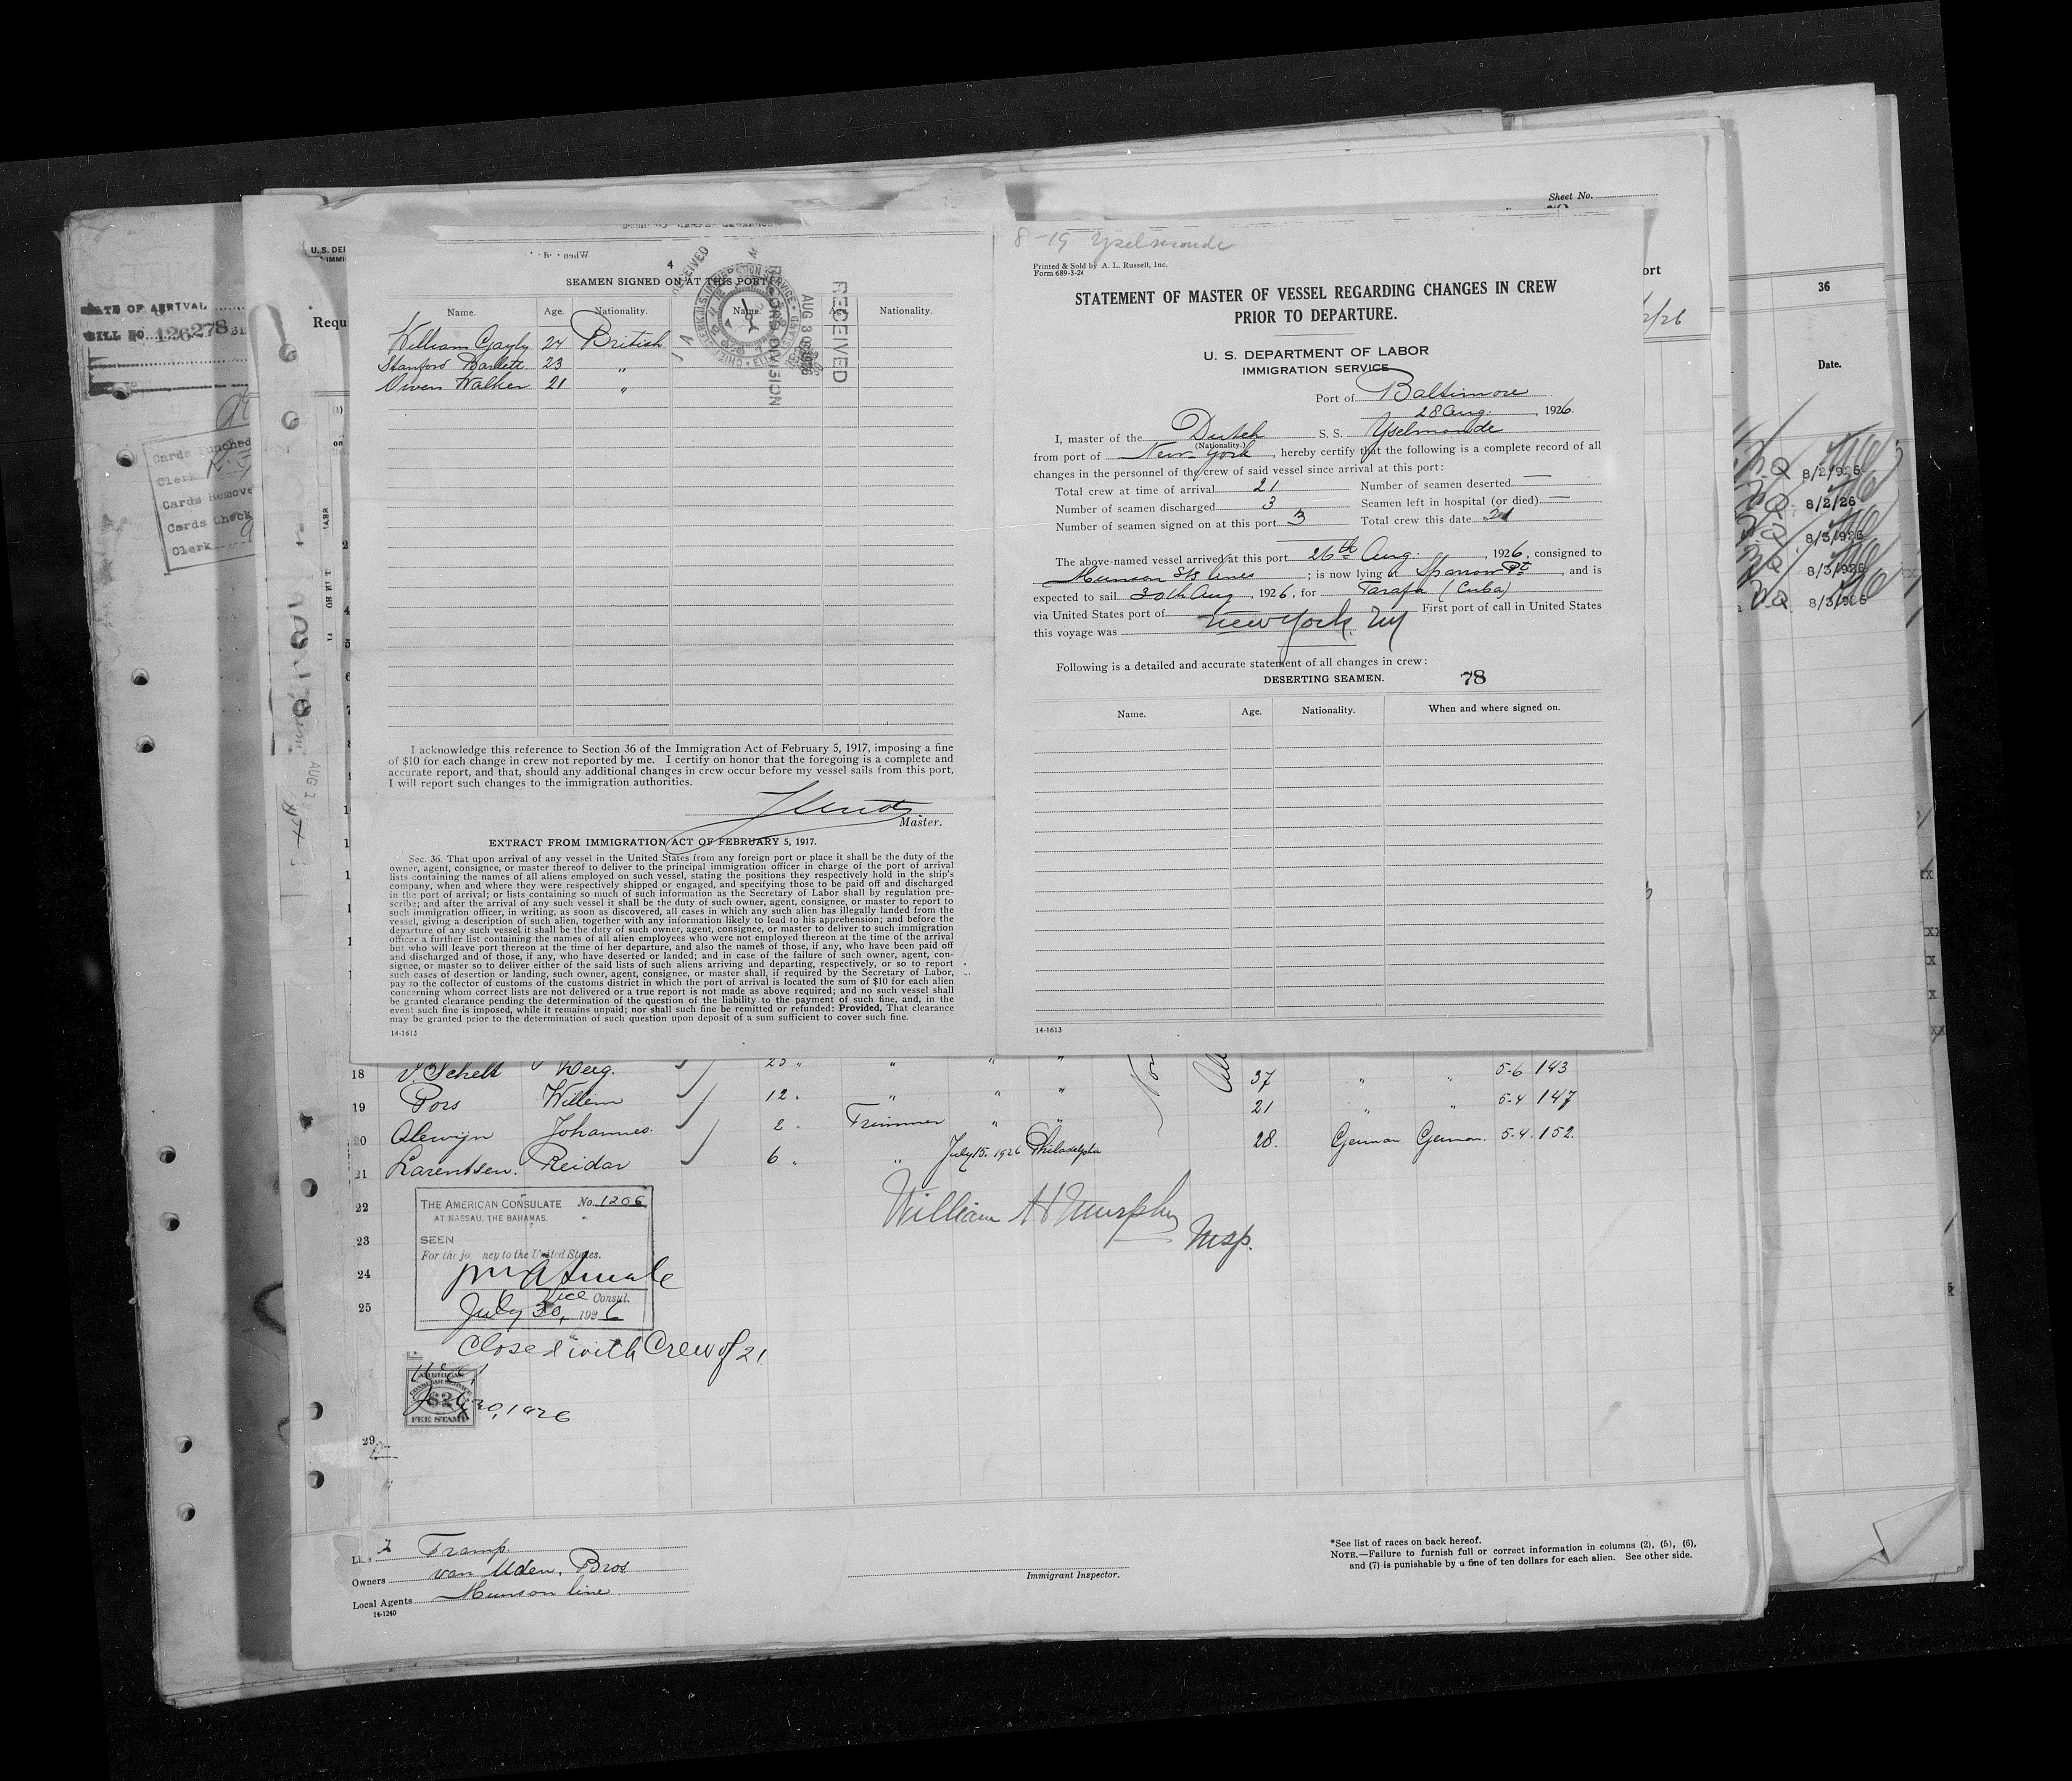 Sheet No.
U. S. DE
IMMI
Requ
ATE OF ARRIVAL
BILL NO. 126278
Cards Punched
Clerk
Cards Remove
Cards Check
Clerk
4
SEAMEN SIGNED ON AT THIS PORT
RECEIVED
AUG 30 1926
RECORD DIVISION
RECEIVED
Name. Age. Nationality. Name. Age. Nationality.
William Gayly 24 British
Stanford Bartlett 23 "
Owen Walker 21 "
I acknowledge this reference to Section 36 of the Immigration Act of February 5, 1917, imposing a fine
of $10 for each change in crew not reported by me. I certify on honor that the foregoing is a complete and
accurate report, and that, should any additional changes in crew occur before my vessel sails from this port,
I will report such changes to the immigration authorities.
Master.
EXTRACT FROM IMMIGRATION ACT OF FEBRUARY 5, 1917.
Sec. 36. That upon arrival of any vessel in the United States from any foreign port or place it shall be the duty of the
owner, agent, consignee, or master thereof to deliver to the principal immigration officer in charge of the port of arrival
lists containing the names of all aliens employed on such vessel, stating the positions they respectively hold in the ship's
company, when and where they were respectively shipped or engaged, and specifying those to be paid off and discharged
in the port of arrival; or lists containing so much of such information as the Secretary of Labor shall by regulation pre-
scribe; and after the arrival of any such vessel it shall be the duty of such owner, agent, consignee, or master to report to
such immigration officer, in writing, as soon as discovered, all cases in which any such alien has illegally landed from the
vessel, giving a description of such alien, together with any information likely to lead to his apprehension; and before the
departure of any such vessel it shall be the duty of such owner, agent, consignee, or master to deliver to such immigration
officer a further list containing the names of all alien employees who were not employed thereon at the time of the arrival
but who will leave port thereon at the time of her departure, and also the names of those, if any, who have been paid off
and discharged and of those, if any, who have deserted or landed; and in case of the failure of such owner, agent, con-
signee, or master so to deliver either of the said lists of such aliens arriving and departing, respectively, or so to report
such cases of desertion or landing, such owner, agent, consignee, or master shall, if required by the Secretary of Labor,
pay to the collector of customs of the customs district in which the port of arrival is located the sum of $10 for each alien
concerning whom correct lists are not delivered or a true report is not made as above required; and no such vessel shall
be granted clearance pending the determination of the question of the liability to the payment of such fine, and, in the
event such fine is imposed, while it remains unpaid; nor shall such fine be remitted or refunded: Provided, That clearance
may be granted prior to the determination of such question upon deposit of a sum sufficient to cover such fine.
14-1613
8-19 Yselmonde
Printed & Sold by A. L. Russell, Inc.
Form 689-3-24
STATEMENT OF MASTER OF VESSEL REGARDING CHANGES IN CREW
PRIOR TO DEPARTURE.
U. S. DEPARTMENT OF LABOR
IMMIGRATION SERVICE
Port of Baltimore
28 Aug. , 1926.
I, master of the Dutch S. S. Yselmonde
(Nationality.)
from port of New-York, hereby certify that the following is a complete record of all
changes in the personnel of the crew of said vessel since arrival at this port:
Total crew at time of arrival 21 Number of seamen deserted —
Number of seamen discharged 3 Seamen left in hospital (or died) —
Number of seamen signed on at this port 3 Total crew this date 21
The above-named vessel arrived at this port 26th Aug. , 1926, consigned to
Munson SS lines ; is now lying at Sparrow Pt , and is
expected to sail 30th Aug , 1926, for Tarafa (Cuba)
via United States port of First port of call in United States
this voyage was New York. NY
Following is a detailed and accurate statement of all changes in crew:
DESERTING SEAMEN. 78
Name. Age. Nationality. When and where signed on.
14-1613
ort
2/26
36
Date.
8/2/926
8/2/26
8/3/926
8/3/926
8/3/926
18 v. Schelt 25 " " " " 37 " " 5-6 143
19 Pors Willem 12 " " " " 21 " " 5-4 147
20 Alewijn Johannes. 2 " Trimmer " " 28. German German. 5-4. 152.
21 Larentsen. Reidar 6 " " July 15. 1926 Philadelphia
22
23
24
25
29
THE AMERICAN CONSULATE No. 1206
AT NASSAU, THE BAHAMAS.
SEEN
For the jo ney to the United States.
Vice Consul.
July 30, 1926
Closed with Crew of 21
AMERICAN
CONSULAR SERVICE
$2
FEE STAMP
July 30, 1926
William H Murphy
Insp.
Line Tramp
Owners van Uden, Bros
Local Agents Munson line
14-1240
Immigrant Inspector.
*See list of races on back hereof.
NOTE.—Failure to furnish full or correct information in columns (2), (5), (6),
and (7) is punishable by a fine of ten dollars for each alien. See other side.